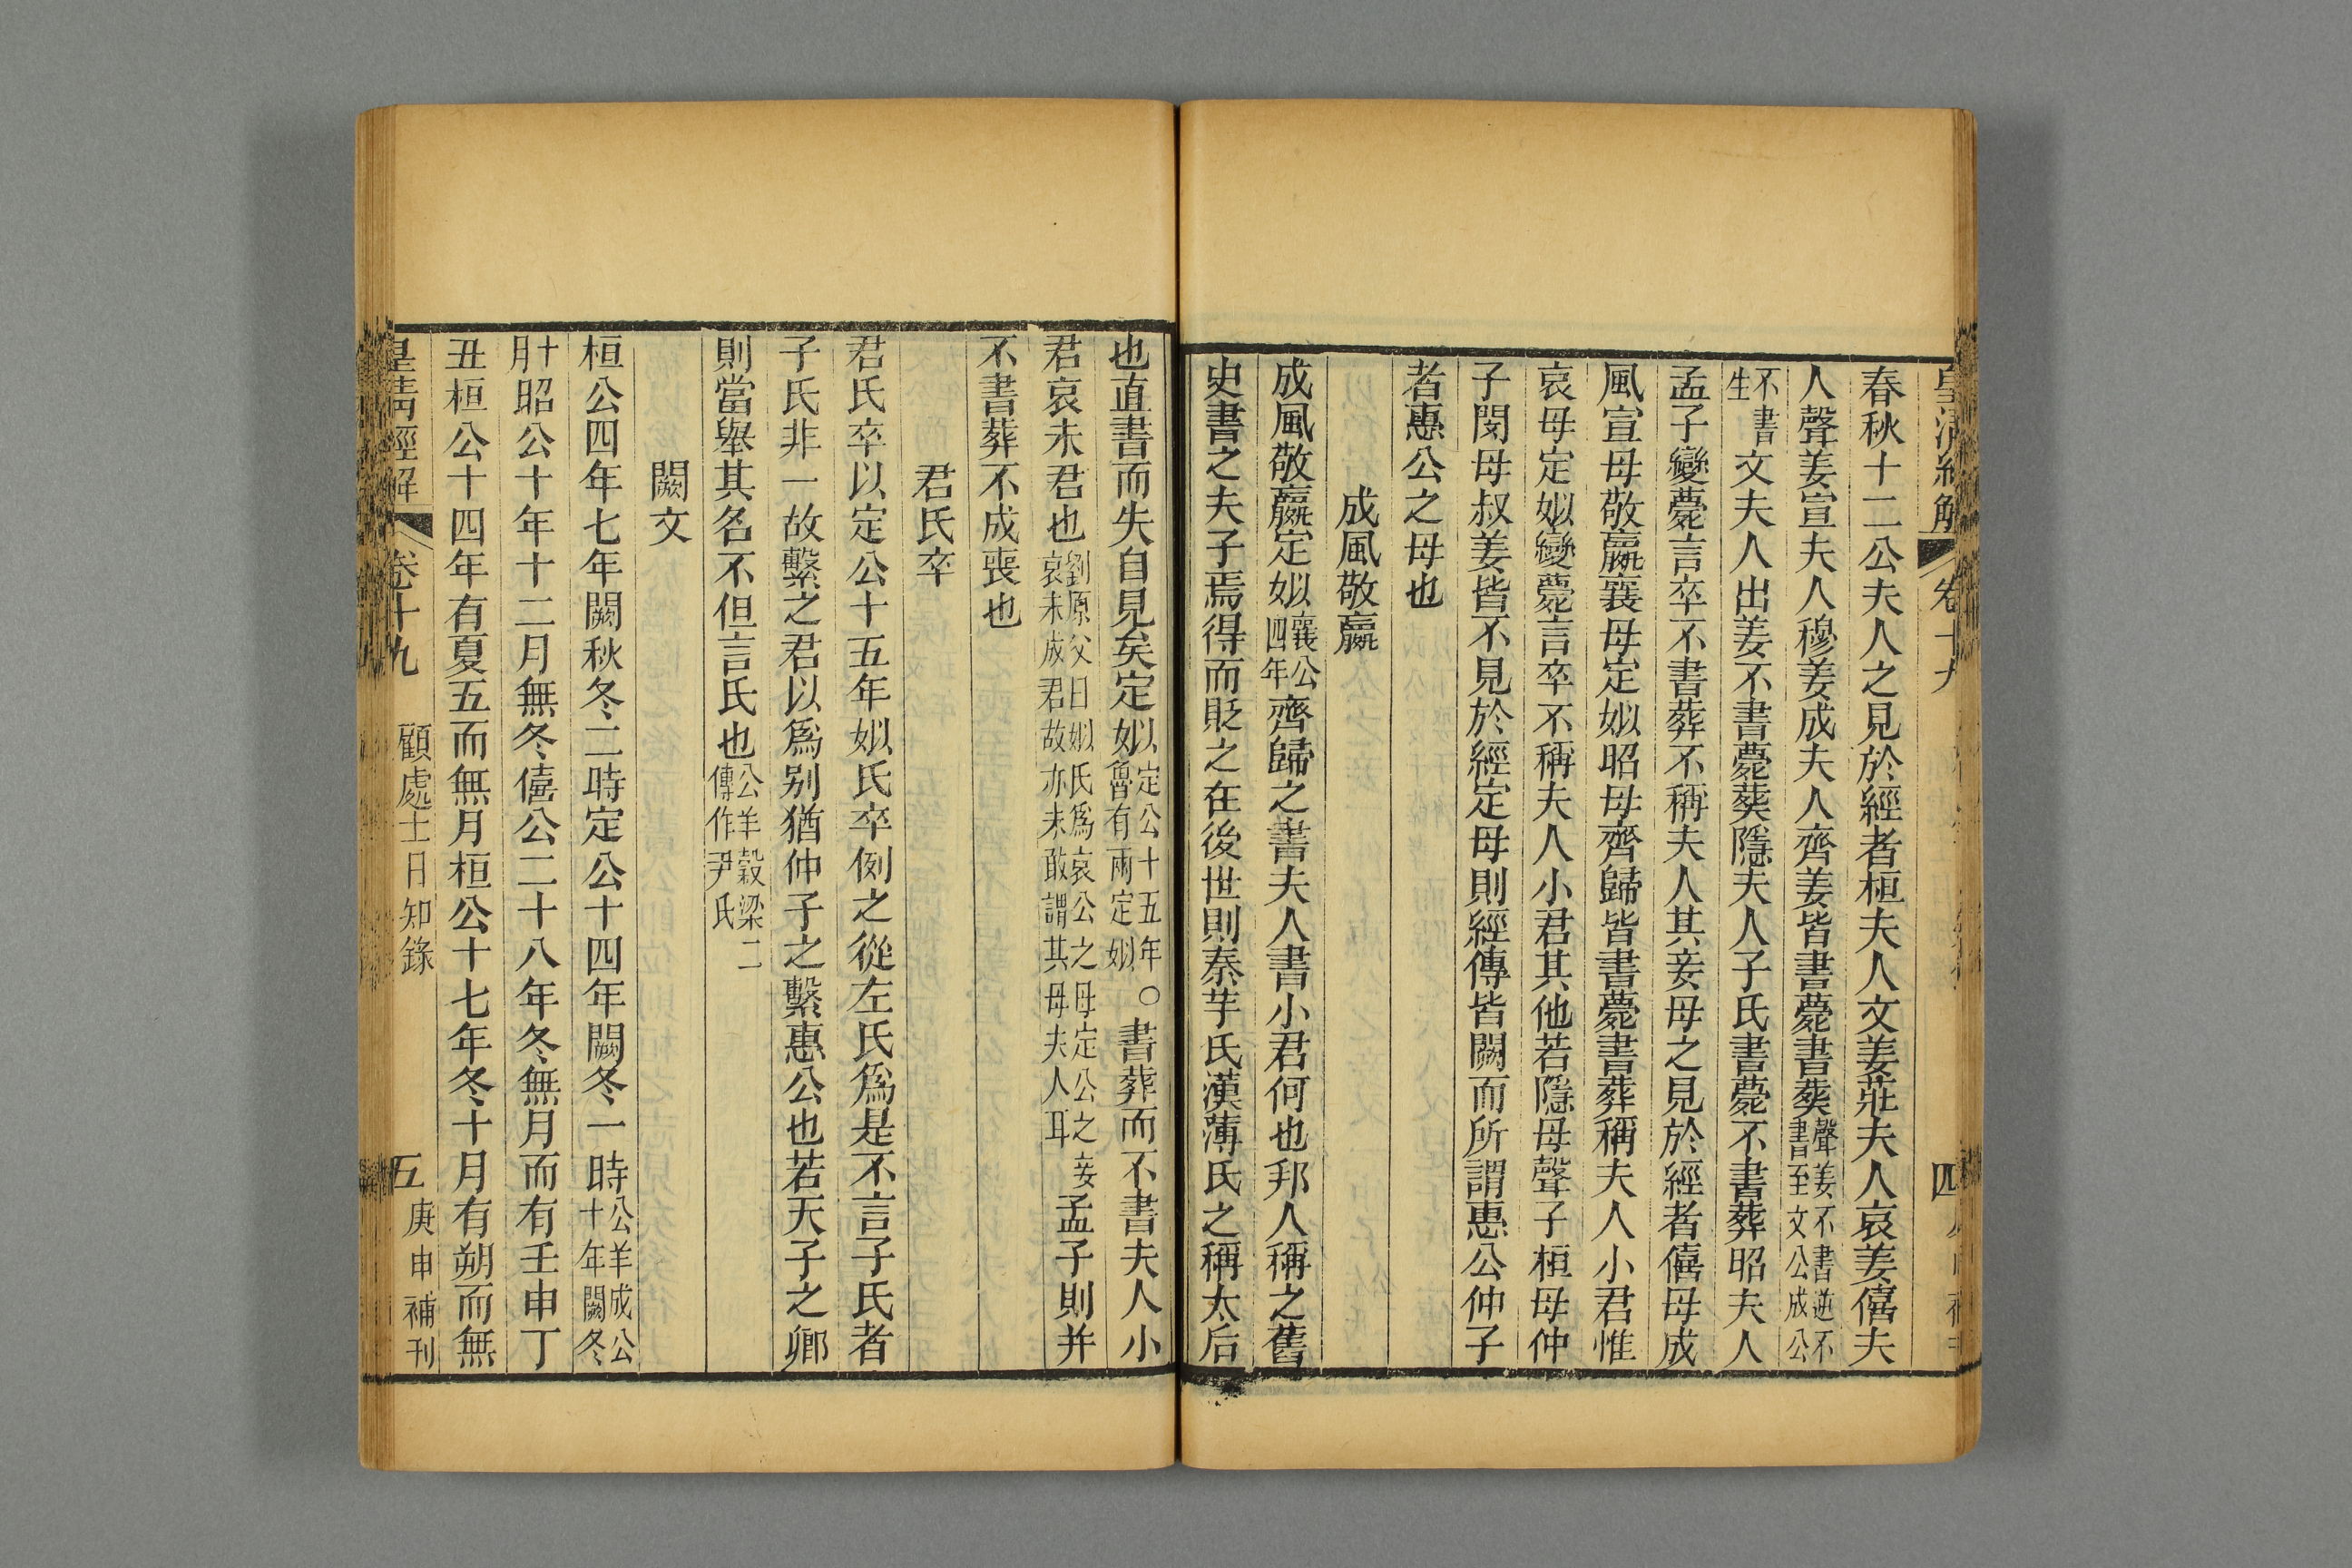 皇清經解 卷十九 四
春秋十二公夫人之見於經者桓夫人文姜莊夫人哀姜僖夫
人聲姜宣夫人穆姜成夫人齊姜皆書薨書葬聲姜不書逆不書至文公成公
不書生文夫人出姜不書薨葬隱夫人子氏書薨不書葬昭夫人
孟子變薨言卒不書葬不稱夫人其妾母之見於經者僖母成
風宣母敬嬴襄母定姒昭母齊歸皆書薨書葬稱夫人小君惟
哀母定姒變薨言卒不稱夫人小君其他若隱母聲子桓母仲
子閔母叔姜皆不見於經定母則經傳皆闕而所謂惠公仲子
者惠公之母也
成風敬嬴
成風敬嬴定姒襄公四年齊歸之書夫人書小君何也邦人稱之舊
史書之夫子焉得而貶之在後世則秦芈氏漢薄氏之稱太后
也直書而失自見矣定姒定公十五年以魯有兩定姒○書葬而不書夫人小
君哀未君也劉原父曰姒氏為哀公之母定公之妾哀未成君故亦未敢謂其母夫人耳孟子則并
不書葬不成喪也
君氏卒
君氏卒以定公十五年姒氏卒例之從左氏爲是不言子氏者
子氏非一故繫之君以爲别猶仲子之繫惠公也若天子之卿
則當舉其名不但言氏也公羊穀梁二傳作尹氏
闕文
桓公四年七年闕秋冬二時定公十四年闕冬一時公羊成公十年闕冬
十月昭公十年十二月無冬僖公二十八年冬無月而有壬申丁
丑桓公十四年有夏五而無月桓公十七年冬十月有朔而無
皇清經解 卷十九 顧處士日知錄 五 庚申補刊